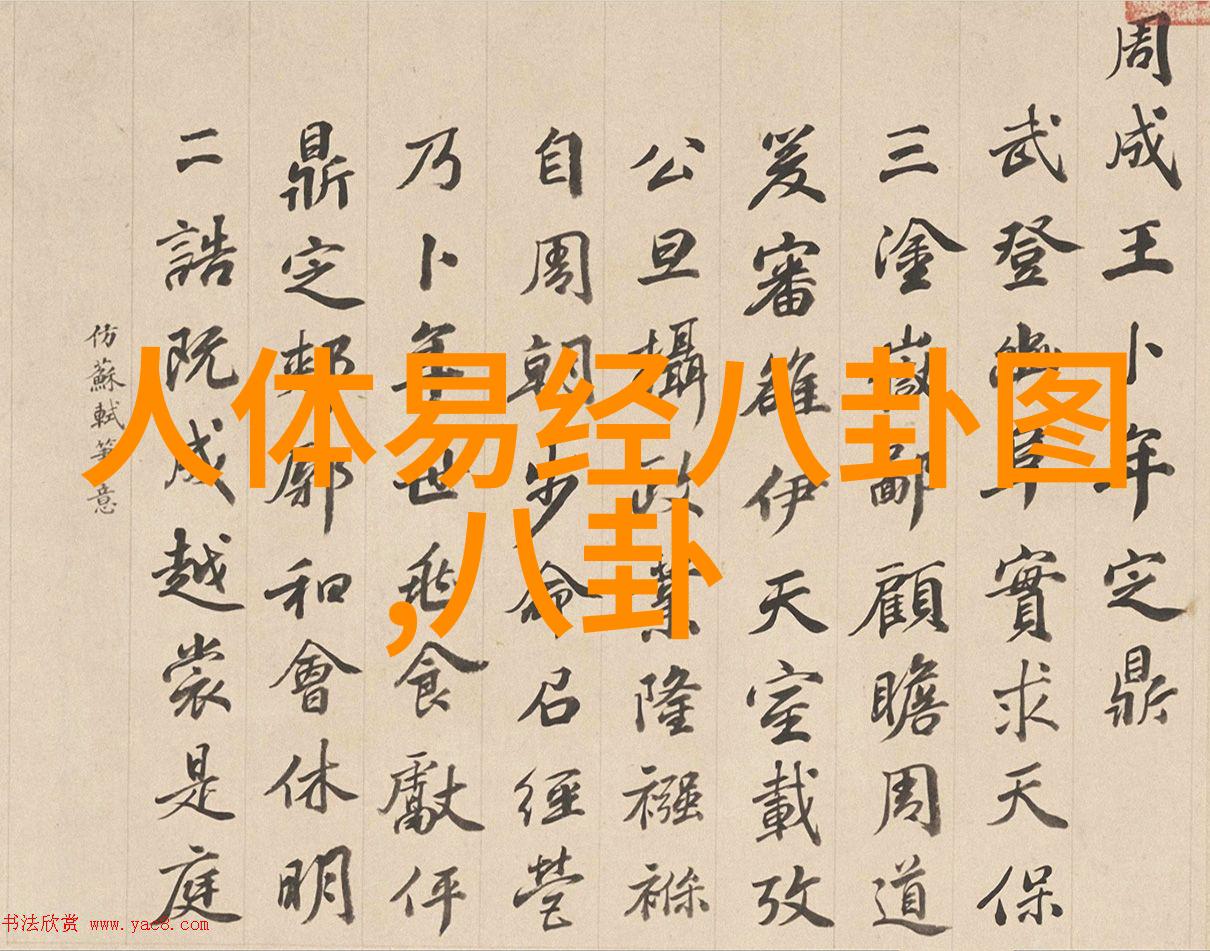 人体易经八卦图
,八卦
周成王卜年定鼎
武登豳阜實求天保
三塗嶽鄙顧瞻周道
爰審雒伊天室載攷
公旦攝政業隆襁褓
自周朝步命召經營
乃卜年世龜食獻伻
鼎定郟鄏和會休明
二誥既成越裳是庭
仿蘇軾筆意
书法欣赏 www.yac8.com